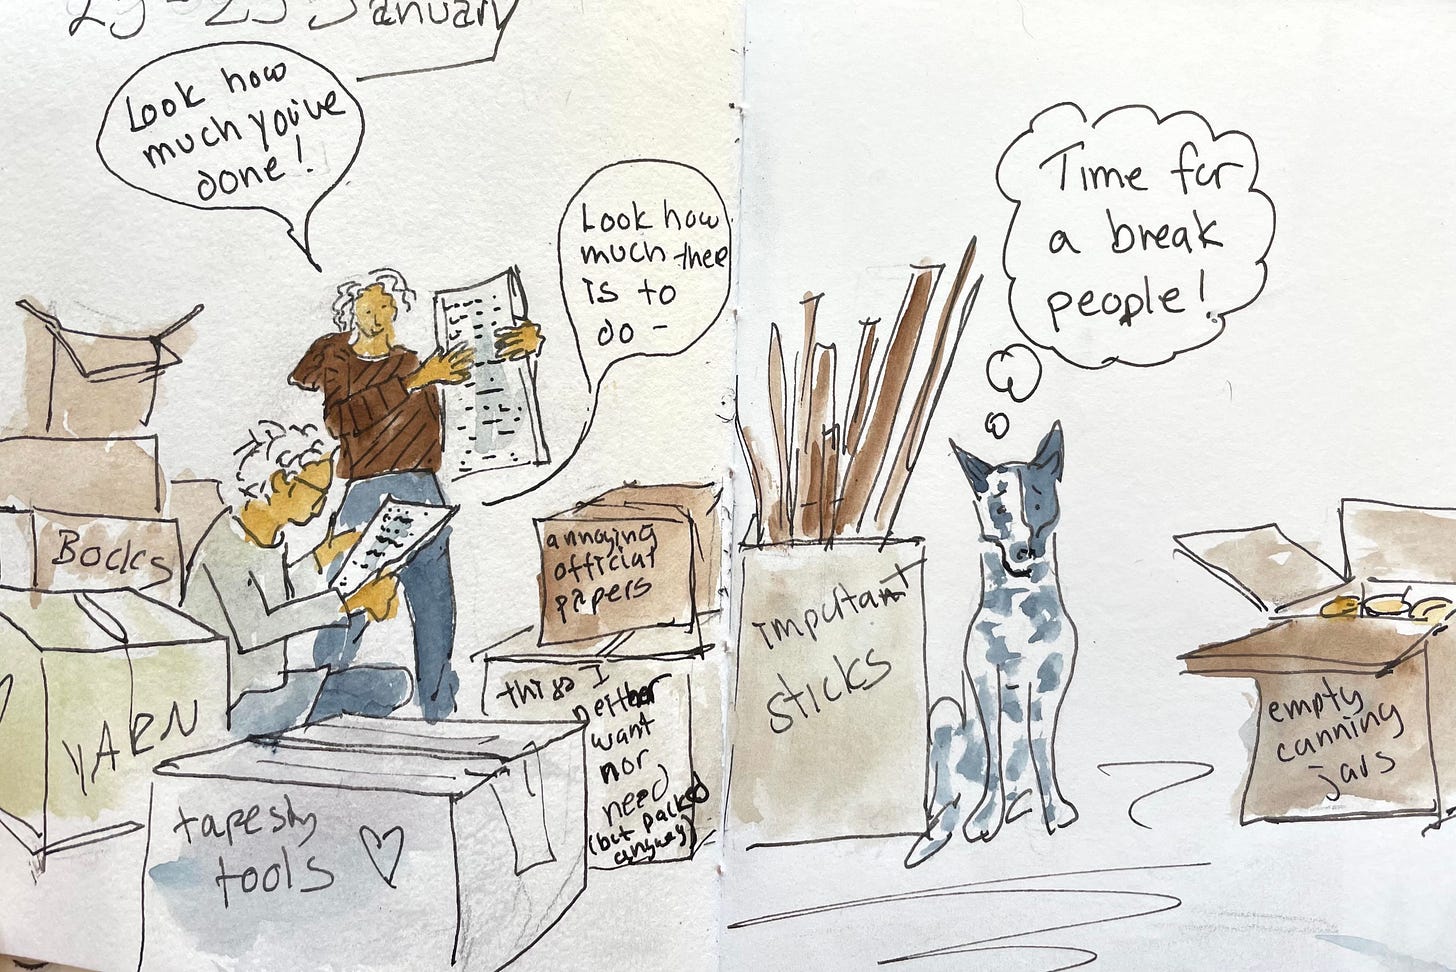 January
Look how
much you've
done!
Look how
much thee
is to
do -
Time for
a break
people!
Books
annoying
official
papers
YARN
this I
neither
want
nor
need
(but packed
anyway)
tapesty
tools
important
sticks
empty
canning
jars